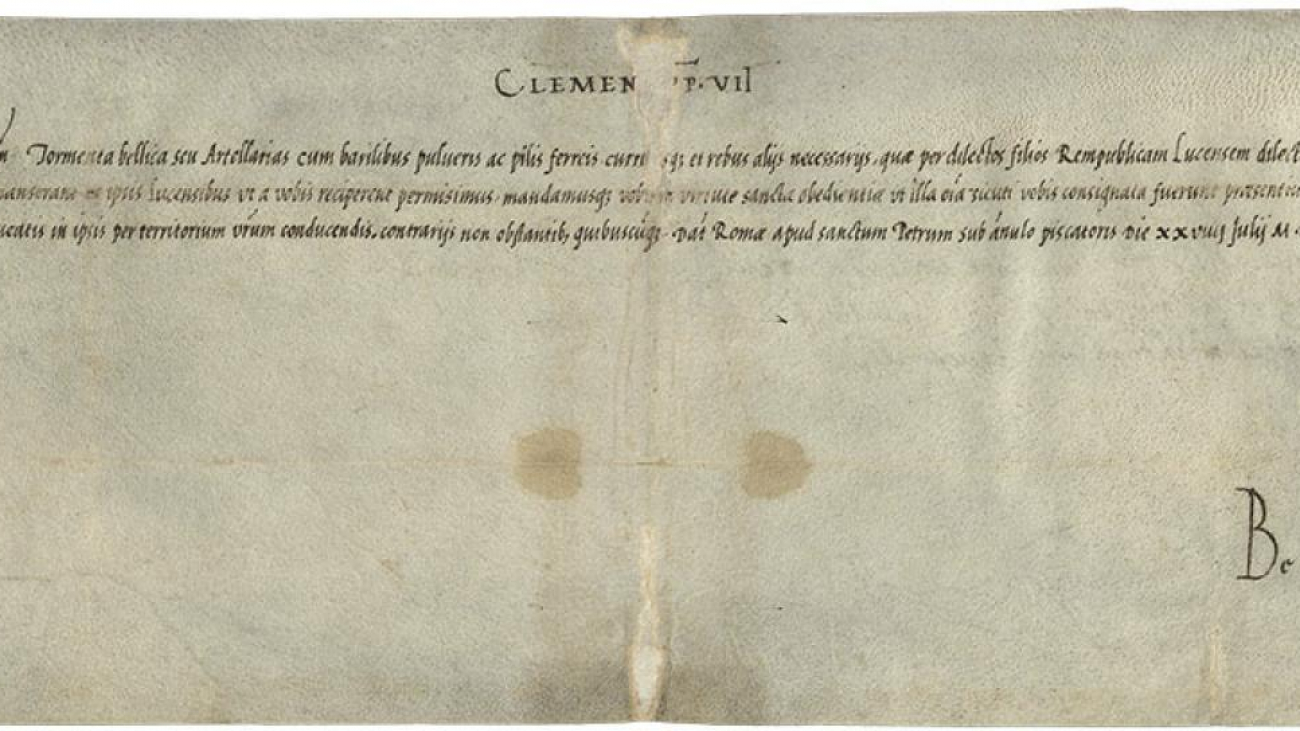 CLEMEN P. VII
Tormenta bellica seu Artellarias cum barilibus pulveris ac pilis ferreis curri sq; et rebus alijs necessarijs, quæ per dilectos filios Rempublicam Lucensem dilect
ipsis Lucensibus vt a vobis reciperent permisimus, mandamusq; vobis virtute sanctæ obedientiæ vt illa oı̄a sicuti vobis consignata fuerunt præsenten
in ipsis per territorium vr̄um conducendis, contrarijs non obstantib; quibuscūq; Dat̄ Romæ apud sanctum Petrum sub ānulo piscatoris Die xxviiij Julij M.
Be